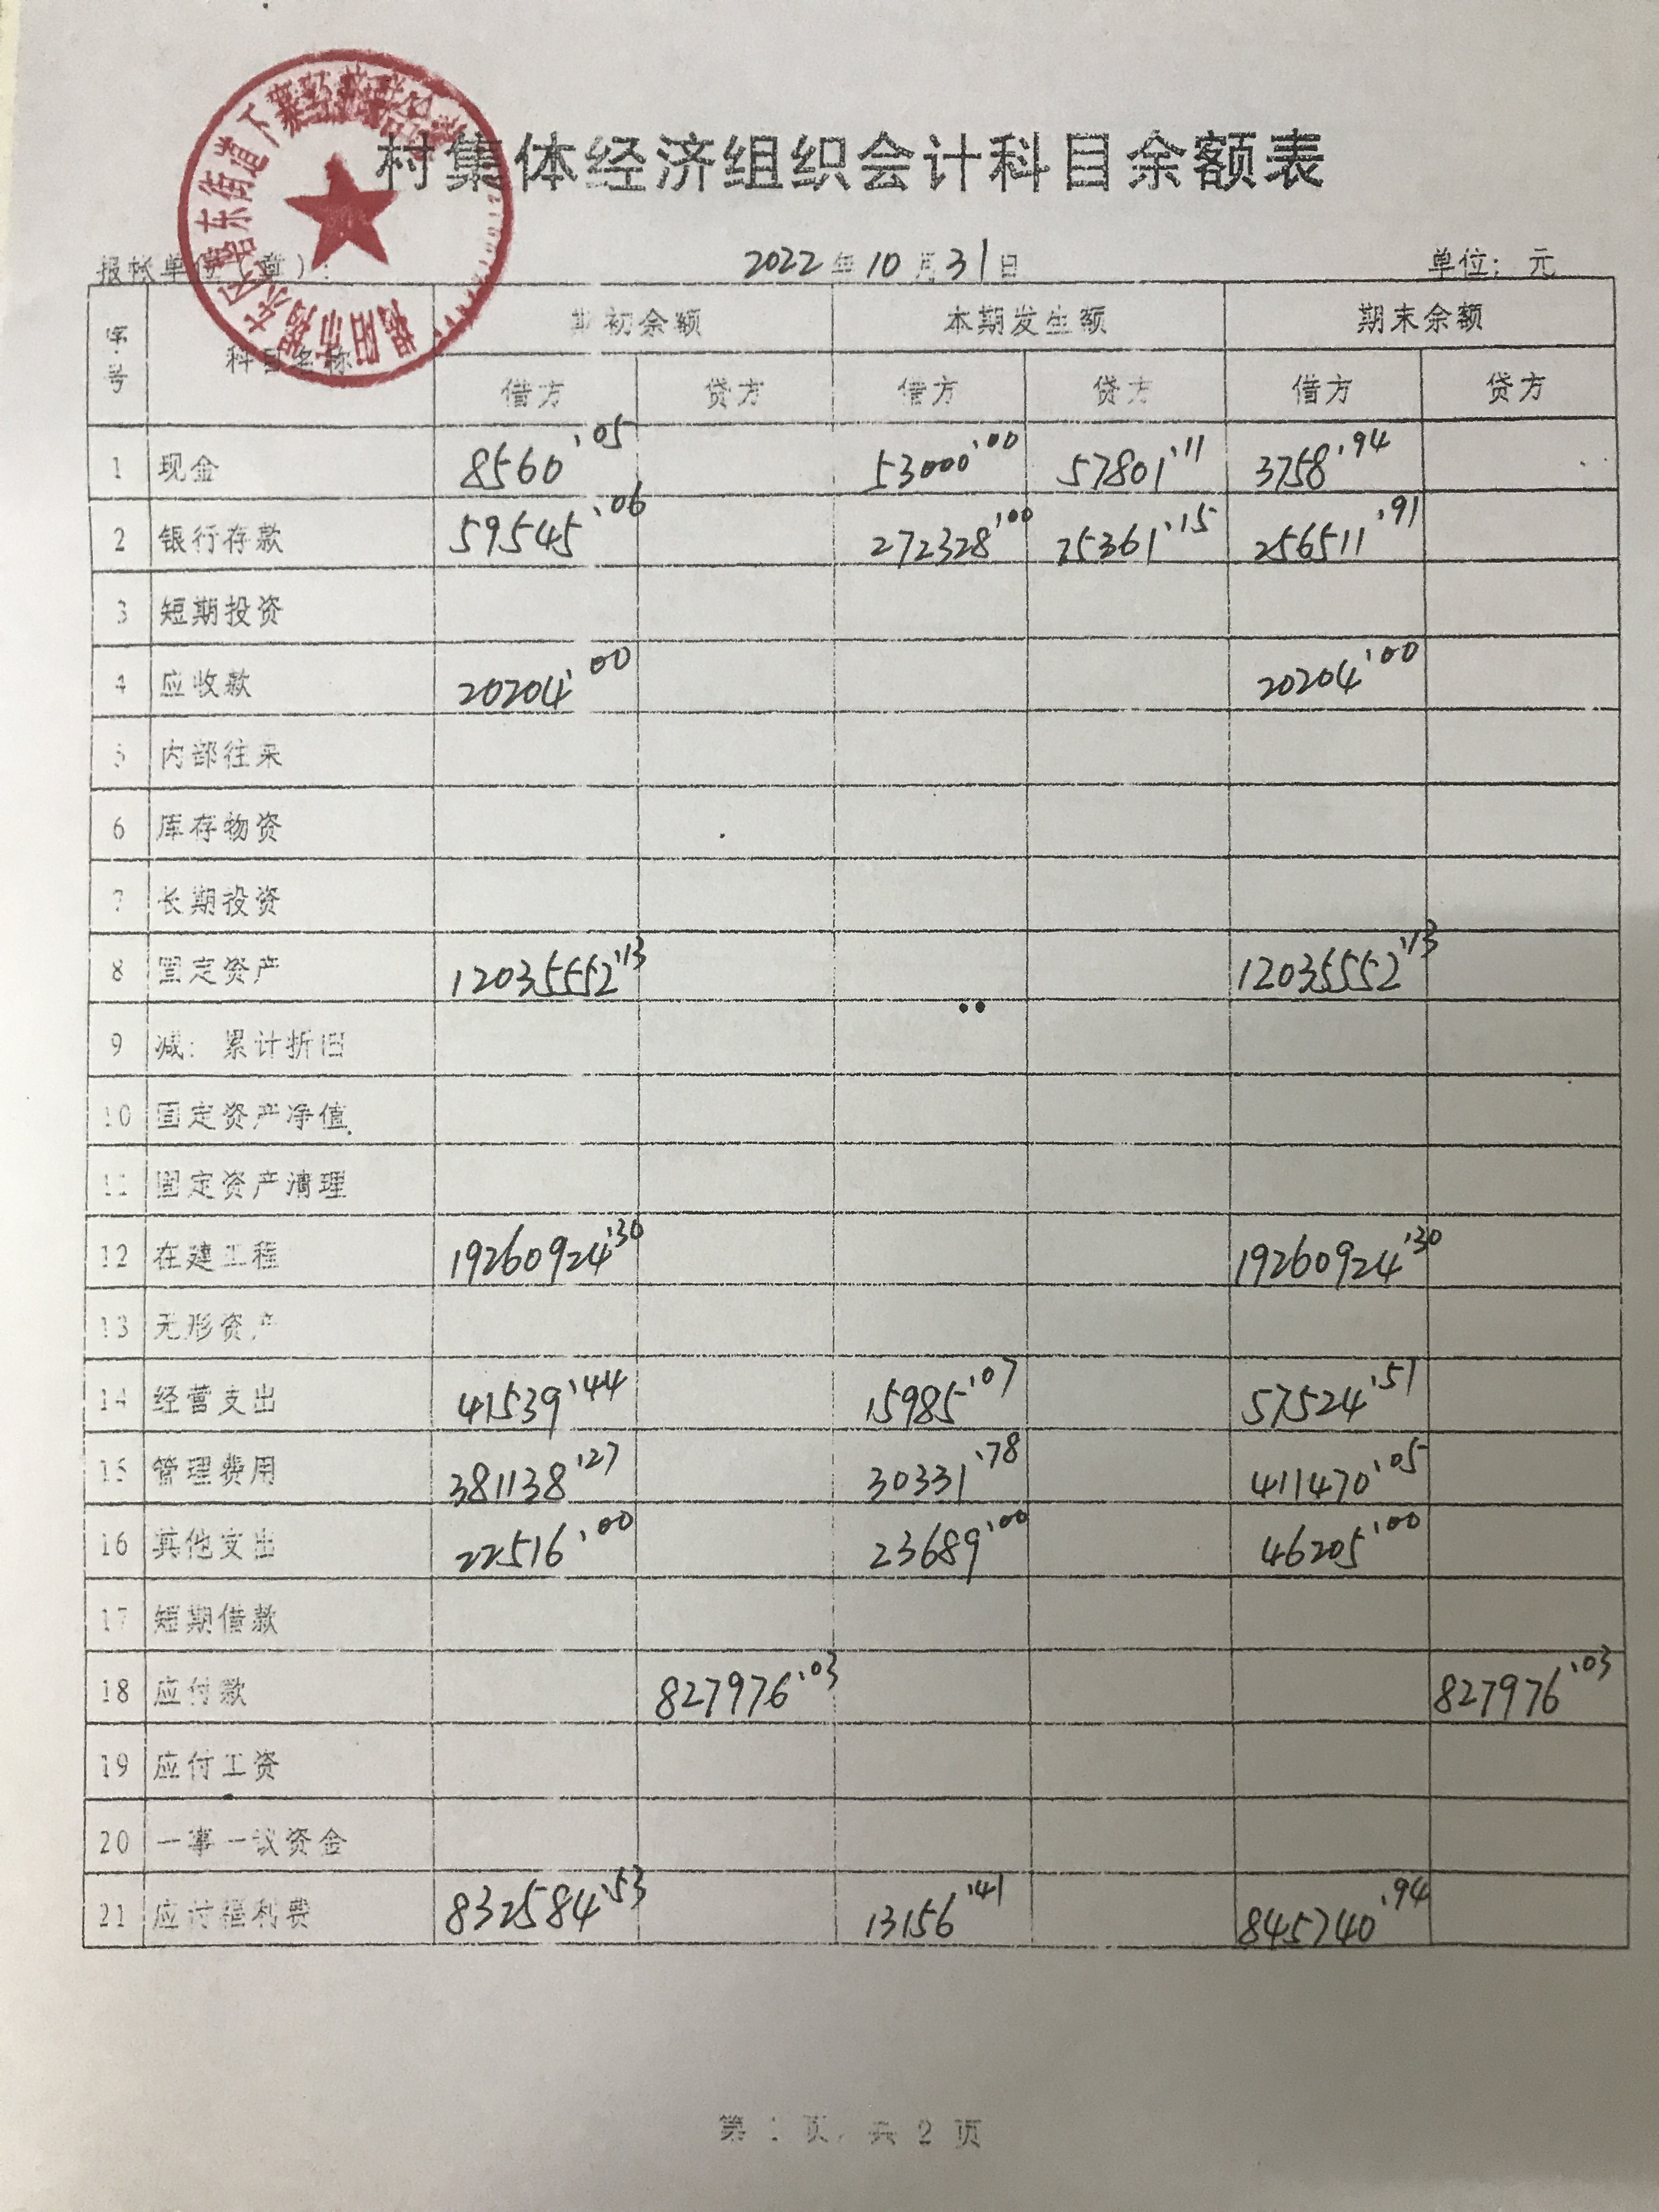 村集体经济组织会计科目余额表
报帐单位（章）： 2022年10月31日 单位：元
序号 科目名称 期初余额 本期发生额 期末余额
借方 贷方 借方 贷方 借方 贷方
1 现金 8560.05 53000.00 57801.11 3758.94
2 银行存款 59545.06 272328.00 75361.15 256511.91
3 短期投资
4 应收款 20204.00 20204.00
5 内部往来
6 库存物资
7 长期投资
8 固定资产 12035552.13 12035552.13
9 减：累计折旧
10 固定资产净值
11 固定资产清理
12 在建工程 19260924.30 19260924.30
13 无形资产
14 经营支出 41539.44 15985.07 57524.51
15 管理费用 381138.27 30331.78 411470.05
16 其他支出 22516.00 23689.00 46205.00
17 短期借款
18 应付款 827976.03 827976.03
19 应付工资
20 一事一议资金
21 应付福利费 832584.53 13156.41 845740.94
第1页，共2页